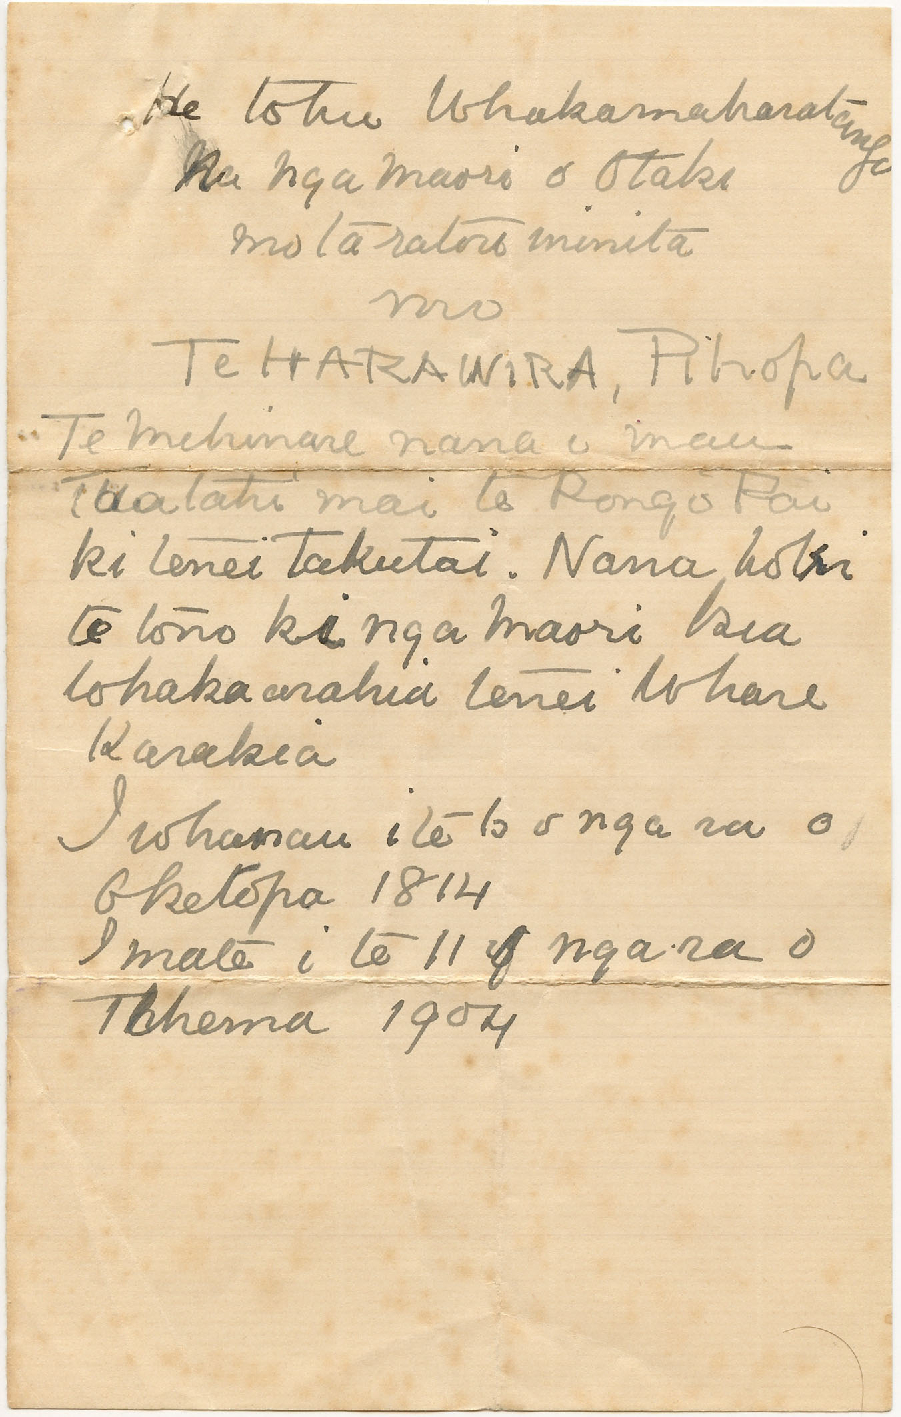 He tohu Whakamaharatanga
Na nga Maori o Otaki
mo tā ratou minita
mo
Te HARAWIRA, Pihopa
Te Mihinare nana i mau
Tuatahi mai te Rongo Pai
ki tenei takutai. Nana hoki
te tono ki nga Maori kia
Whakaarahia tenei Whare
Karakia
I whanau i te o nga ra o
Oketopa 1814
I mate i te 11 nga ra o
Tihema 1904